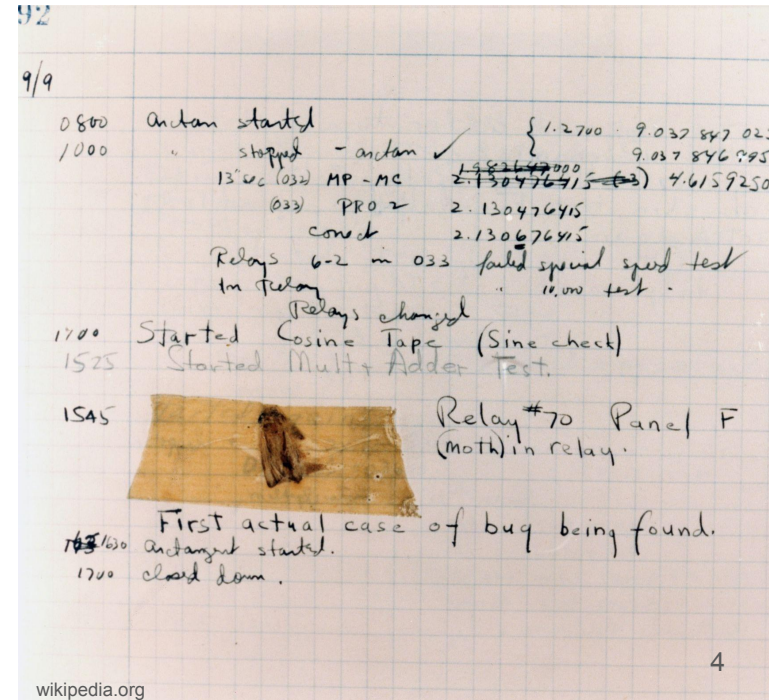 92
9/9
0800 arctan started { 1.2700 9.037 847 025
1000 " stopped - arctan ✓ 9.037 846 995
13" sec (032) MP - MC 2.130476415 (-3) 4.6159250
(033) PRO 2 2.130476415
conect 2.130676415
Relays 6-2 in 033 failed special speed test
In Relay " 10,000 test .
Relays changed
1700 Started Cosine Tape (Sine check)
1525 Started Mult + Adder Test.
1545 Relay #70 Panel F
(moth) in relay.
First actual case of bug being found.
1630 arctangent started.
1700 closed down.
4
wikipedia.org